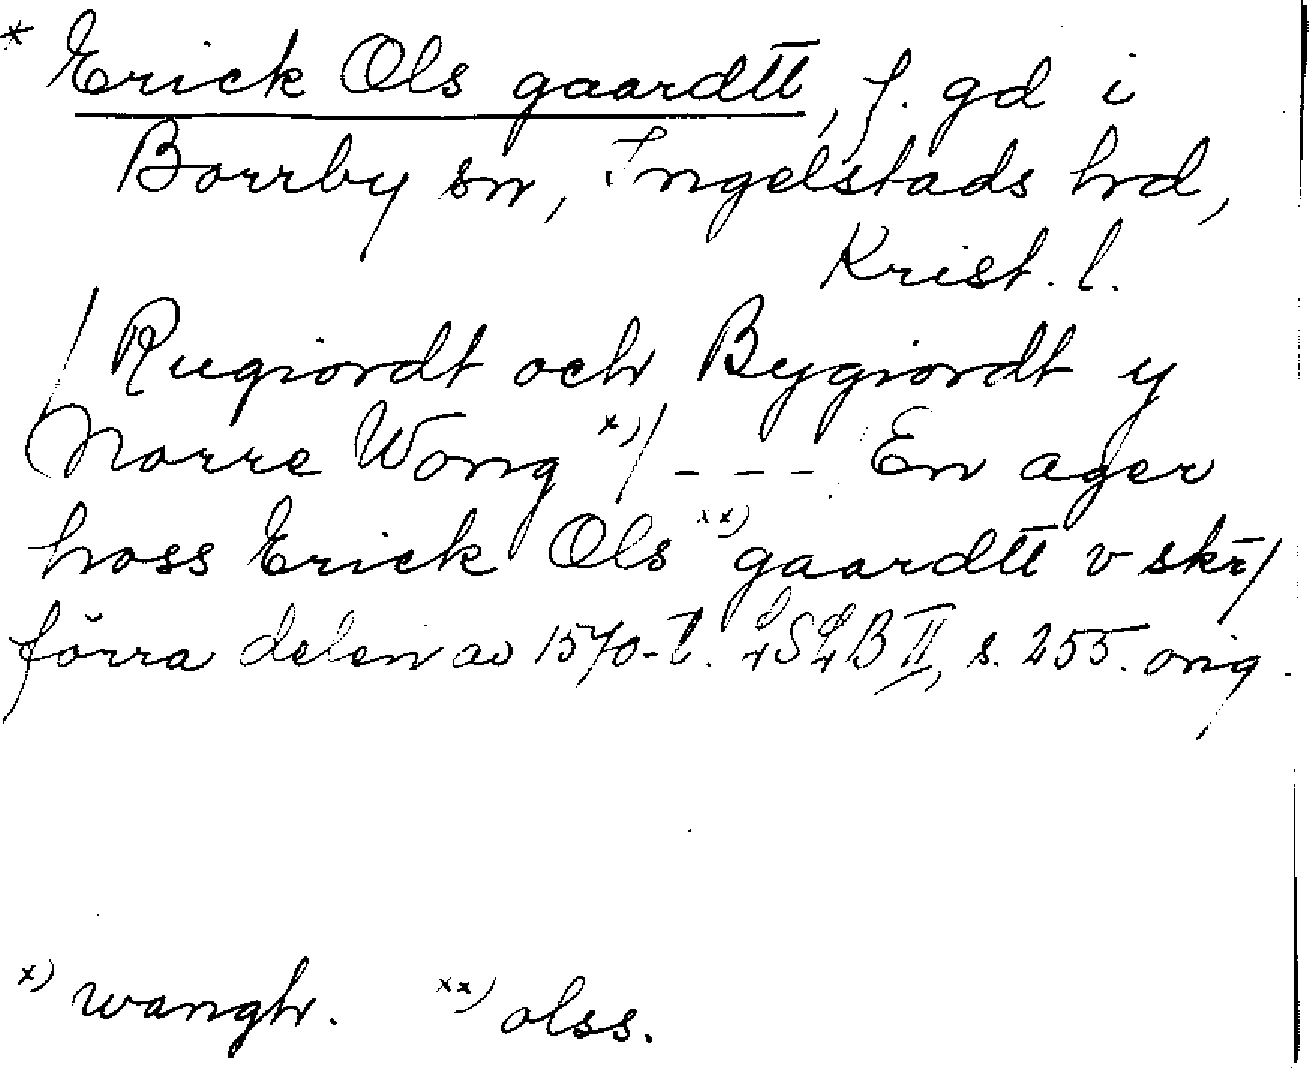 * Erick Ols gaardtt, f. gd i
Borrby sn, Ingelstads hd,
Krist. l.
/Rugiordt och Bygiordt y
Norre Wong x)/ - - - En ager
hoss Erick Ols xx) gaardtt v skr/
förra delen av 1570-t. B II, s. 255. orig.
x) wangh. xx) olss.